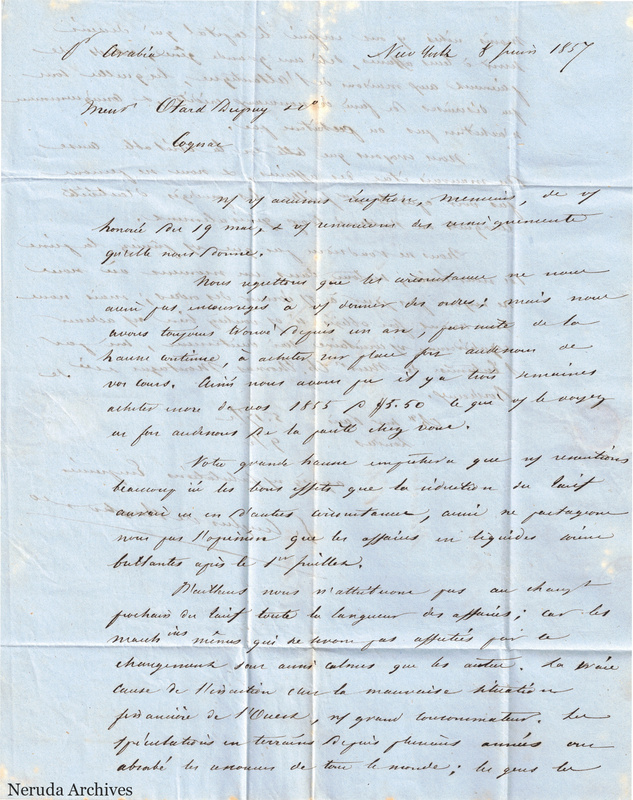 pr Arabia New York 8 juin 1857
Messrs Otard Dupuy & Co
Cognac
ns vs accusons réception, messieurs, de vs
honorée du 19 mai, & vs remercions des renseignements
qu'elle nous donne.
Nous regrettons que les circonstances ne nous
aient pas encouragés à vs donner des ordres; mais nous
avons toujours trouvé depuis un an, par suite de la
hausse continue, à acheter sur place fort audessous de
vos cours. Ainsi nous avons pu il y a trois semaines
acheter encore de vos 1855 à $5.50 ce que vs le voyez
est fort audessous de la parité chez vous.
Votre grande hausse empêchera que ns ressentions
beaucoup ici les bons effets que la réduction du tarif
aurait eu en d'autres circonstances, aussi ne partageons
nous pas l'opinion que les affaires en liquides soient
brillantes après le 1er juillet.
D'ailleurs nous n'attribuons pas au changt
prochain du tarif toute la langueur des affaires; car les
march ises mêmes qui ne seront pas affectées par ce
changement sont aussi calmes que les autres. La vraie
cause de l'inaction est la mauvaise situation
financière de l'Ouest, ns grand consommateur. Les
spéculations en terrains depuis plusieurs années ont
absorbé les ressources de tout le monde; les gens les
Neruda Archives